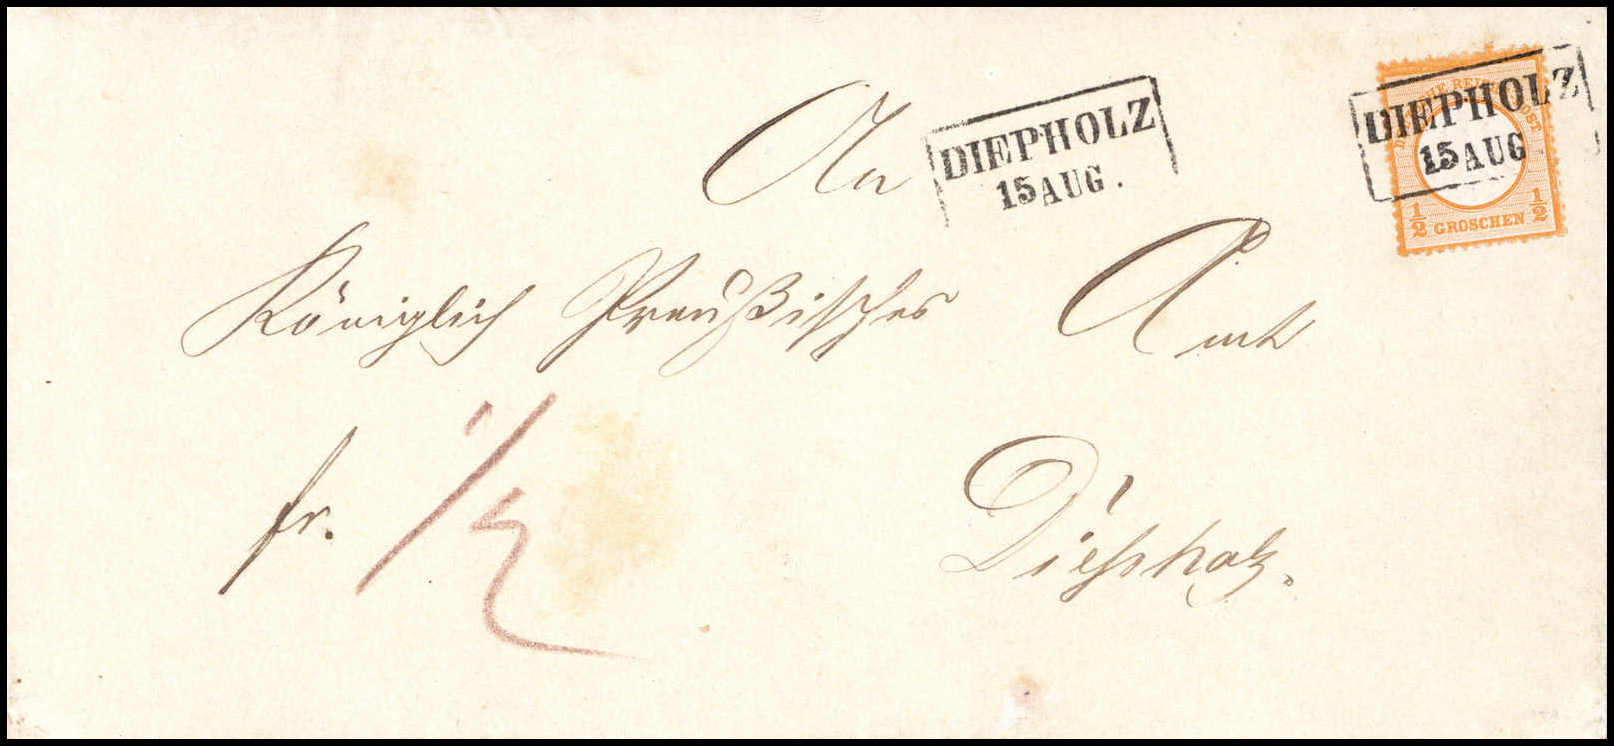 An
DIEPHOLZ
15 AUG.
DEUTSCHE REICHS-POST
DIEPHOLZ
15 AUG
1/2 GROSCHEN 1/2
Königlich Preußisches Amt
fr. 1/2
Diepholz.